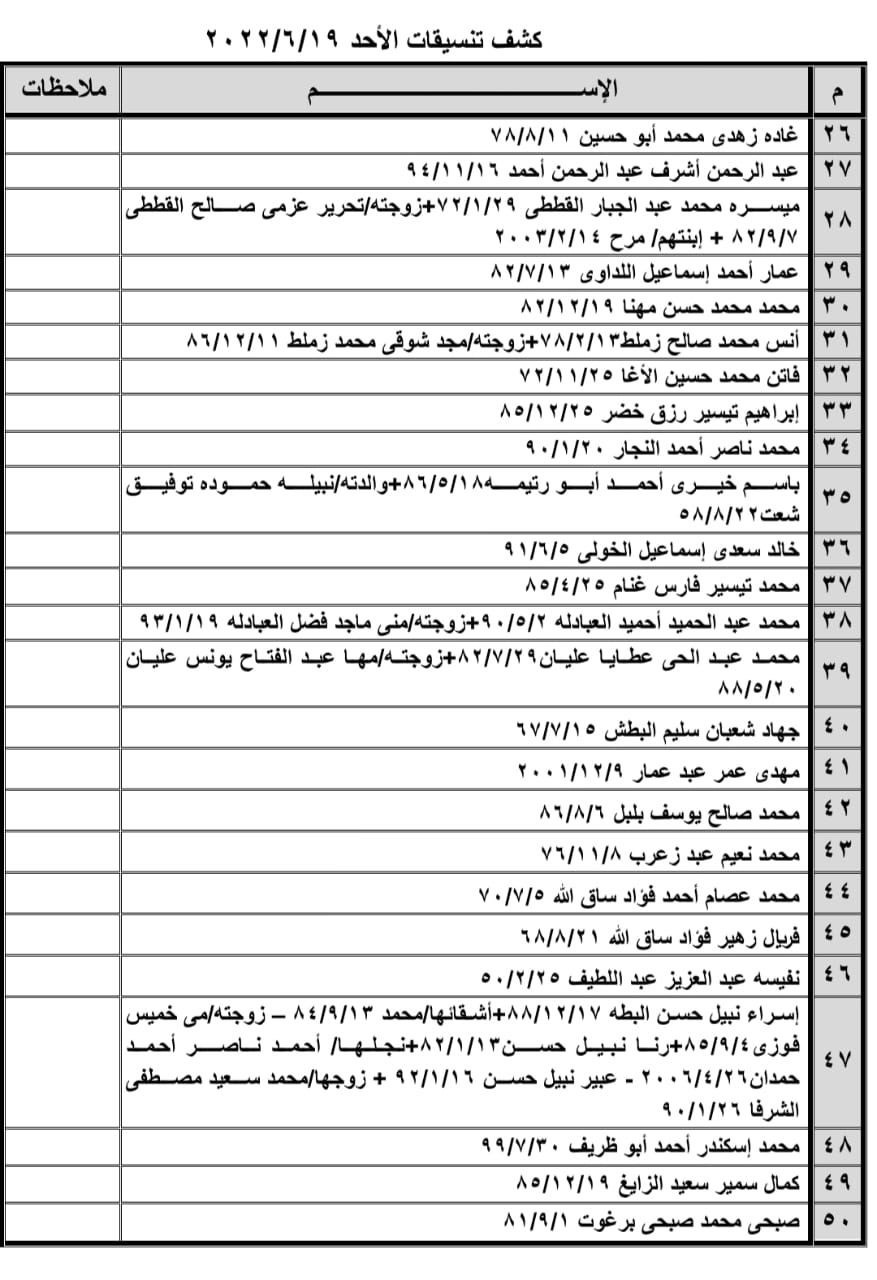 كشف تنسيقات الأحد ٢٠٢٢/٦/١٩
م الإســــــــم ملاحظات
٢٦ غاده زهدى محمد أبو حسين ٧٨/٨/١١
٢٧ عبد الرحمن أشرف عبد الرحمن أحمد ٩٤/١١/١٦
٢٨ ميسره محمد عبد الجبار القططى ٧٢/١/٢٩+زوجته/تحرير عزمى صالح القططى
٨٢/٩/٧ + إبنتهم/ مرح ٢٠٠٣/٢/١٤
٢٩ عمار أحمد إسماعيل اللداوى ٨٢/٧/١٣
٣٠ محمد محمد حسن مهنا ٨٢/١٢/١٩
٣١ أنس محمد صالح زملط٧٨/٢/١٣+زوجته/مجد شوقى محمد زملط ٨٦/١٢/١١
٣٢ فاتن محمد حسين الأغا ٧٢/١١/٢٥
٣٣ إبراهيم تيسير رزق خضر ٨٥/١٢/٢٥
٣٤ محمد ناصر أحمد النجار ٩٠/١/٢٠
٣٥ باسم خيرى أحمد أبو رتيمه٨٦/٥/١٨+والدته/نبيله حموده توفيق
شعت٥٨/٨/٢٢
٣٦ خالد سعدى إسماعيل الخولى ٩١/٦/٥
٣٧ محمد تيسير فارس غنام ٨٥/٤/٢٥
٣٨ محمد عبد الحميد أحميد العبادله ٩٠/٥/٢+زوجته/منى ماجد فضل العبادله ٩٣/١/١٩
٣٩ محمد عبد الحى عطايا عليان٨٢/٧/٢٩+زوجته/مها عبد الفتاح يونس عليان
٨٨/٥/٢٠
٤٠ جهاد شعبان سليم البطش ٦٧/٧/١٥
٤١ مهدى عمر عبد عمار ٢٠٠١/١٢/٩
٤٢ محمد صالح يوسف بلبل ٨٦/٨/٦
٤٣ محمد نعيم عبد زعرب ٧٦/١١/٨
٤٤ محمد عصام أحمد فؤاد ساق الله ٧٠/٧/٥
٤٥ فريال زهير فؤاد ساق الله ٦٨/٨/٢١
٤٦ نفيسه عبد العزيز عبد اللطيف ٥٠/٢/٢٥
٤٧ إسراء نبيل حسن البطه ٨٨/١٢/١٧+أشقائها/محمد ٨٤/٩/١٣ – زوجته/مى خميس
فوزى٨٥/٩/٤+رنا نبيل حسن٨٢/١/١٣+نجلها/ أحمد ناصر أحمد
حمدان٢٠٠٦/٤/٢٦ - عبير نبيل حسن ٩٢/١/١٦ + زوجها/محمد سعيد مصطفى
الشرفا ٩٠/١/٢٦
٤٨ محمد إسكندر أحمد أبو ظريف ٩٩/٧/٣٠
٤٩ كمال سمير سعيد الزايغ ٨٥/١٢/١٩
٥٠ صبحى محمد صبحى برغوت ٨١/٩/١